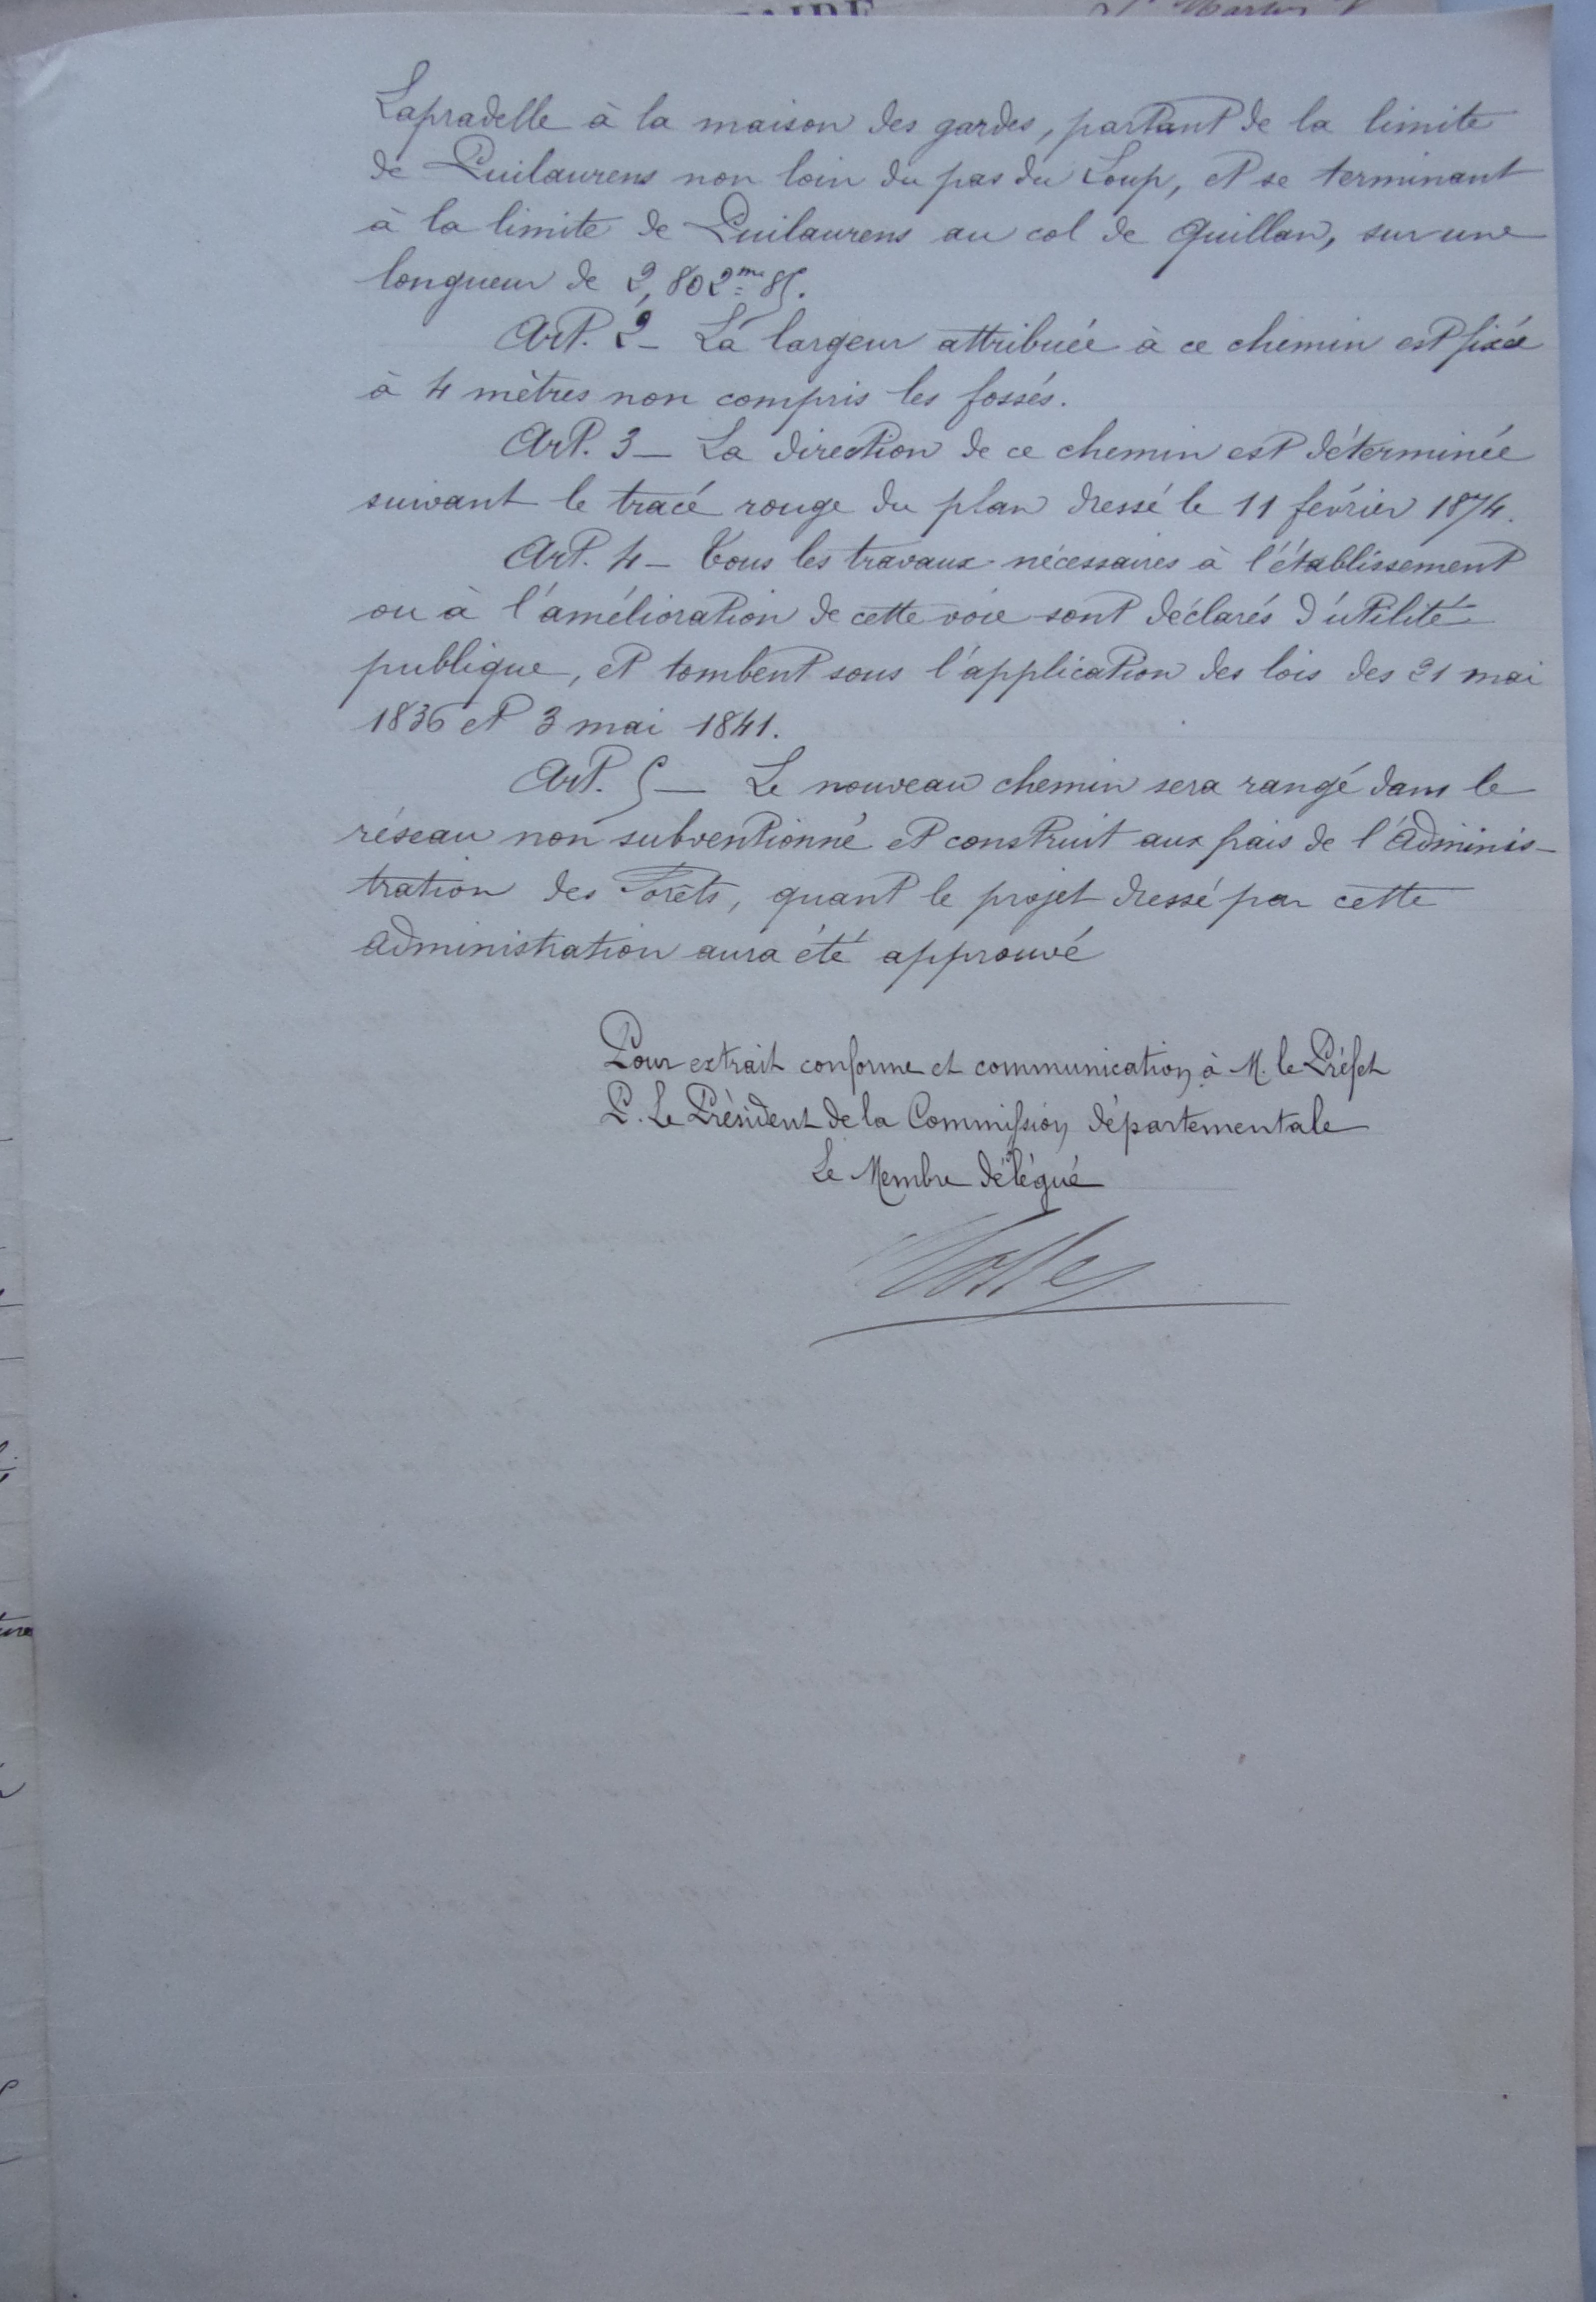 Lapradelle à la maison des gardes, partant de la limite
de Puilaurens non loin du pas du Loup, et se terminant
à la limite de Puilaurens au col de Quillan, sur une
longueur de 2,802m 85.
Art. 2 — La largeur attribuée à ce chemin est fixée
à 4 mètres non compris les fossés.
Art. 3 — La direction de ce chemin est déterminée
suivant le tracé rouge du plan dressé le 11 février 1874.
Art. 4 — Tous les travaux nécessaires à l'établissement
ou à l'amélioration de cette voie sont déclarés d'utilité
publique, et tombent sous l'application des lois des 21 mai
1836 et 3 mai 1841.
Art. 5 — Le nouveau chemin sera rangé dans le
réseau non subventionné et construit aux frais de l'Adminis-
tration des Forêts, quant le projet dressé par cette
administration aura été approuvé
Pour extrait conforme et communication à M. le Préfet
P. Le Président de la Commission départementale
Le Membre délégué